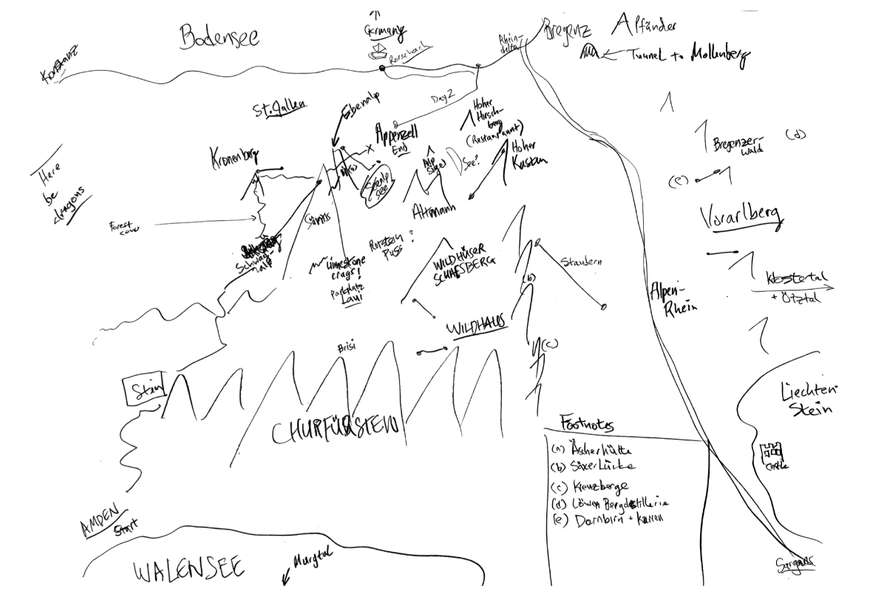 Germany
Bregenz
Alfänder
Bodensee
Rorschach
Rhein-
delta
Tunnel to Mollenberg
Konstanz
St. Gallen
Ebenalp
Day 2
Hoher
Hirsch-
berg
(Restaurant)
Appenzell
End
Bregenzer-
wald
(d)
Kronenberg
Here
be
dragons
Alp
Sigel
See!
Hoher
Kasten
(a)
Seealp
see
(e)
Forest
cover
Säntis
Altmann
Vorarlberg
Schwäg
alp
Limestone
crags!
Parkplatz
Laui
Rotzen
Puss?
WILDHUSER
SCHAFSBERG
Staubern
Klostertal
+ Ötztal
(b)
Alpen-
Rhein
WILDHAUS
Brisi
(c)
Stein
Liechten-
Stein
CHURFÜRSTEN
Footnotes
(a) Äscherhütte
(b) Saxerlücke
(c) Kreuzberge
(d) Löwen Bergdestillerie
(e) Dornbirn + Karren
Castle
AMDEN
Start
Sargans
WALENSEE
Murgtal